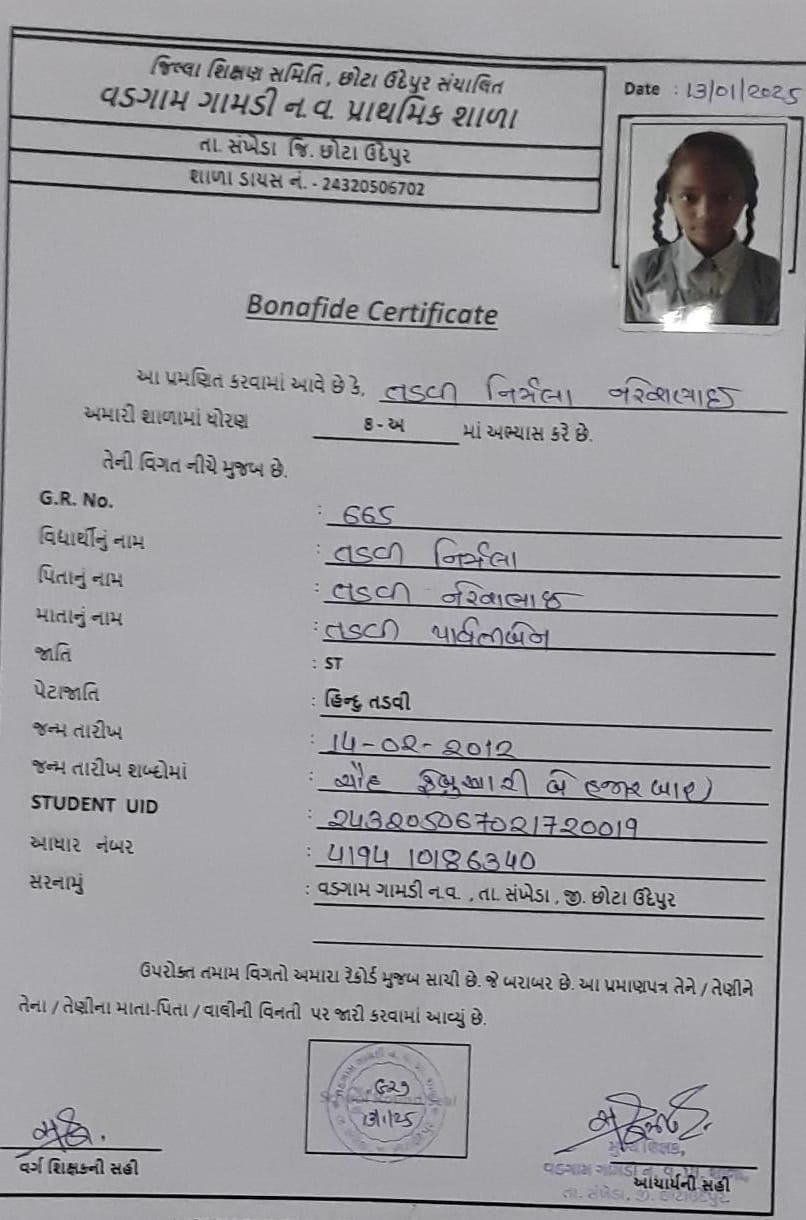 જિલ્લા શિક્ષણ સમિતિ, છોટા ઉદેપુર સંચાલિત
વડગામ ગામડી ન.વ. પ્રાથમિક શાળા
તા. સંખેડા જિ. છોટા ઉદેપુર
શાળા ડાયસ નં. - 24320506702
Date : 13/01/2025
Bonafide Certificate
આ પ્રમણિત કરવામાં આવે છે કે, તડવી નિર્મલા નરેશભાઈ
અમારી શાળામાં ધોરણ 8-અ માં અભ્યાસ કરે છે.
તેની વિગત નીચે મુજબ છે.
G.R. No. : 665
વિદ્યાર્થીનું નામ : તડવી નિર્મલા
પિતાનું નામ : તડવી નરેશભાઈ
માતાનું નામ : તડવી પાર્વતીબેન
જાતિ : ST
પેટાજાતિ : હિન્દુ તડવી
જન્મ તારીખ : 14-02-2012
જન્મ તારીખ શબ્દોમાં : ચૌદ ફેબ્રુઆરી બે હજાર બાર
STUDENT UID : 243205067021720019
આધાર નંબર : 4194 10186340
સરનામું : વડગામ ગામડી ન.વ. , તા. સંખેડા , જી. છોટા ઉદેપુર
ઉપરોક્ત તમામ વિગતો અમારા રેકોર્ડ મુજબ સાચી છે. જે બરાબર છે. આ પ્રમાણપત્ર તેને / તેણીને
તેના / તેણીના માતા-પિતા / વાલીની વિનતી પર જારી કરવામાં આવ્યું છે.
13/1/25
વર્ગ શિક્ષકની સહી
મુખ્ય શિક્ષક,
વડગામ ગામડી ન. વ.
આચાર્યની સહી
તા. સંખેડા, જી. છોટાઉદેપુર